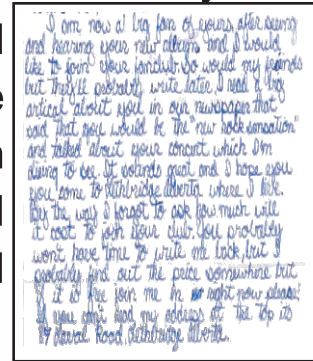 I am now a big fan of yours, after seeing
and hearing your new album and I would
like to join your fanclub. So would my friends
but they'll probably write later. I read a big
artical about you in our newspaper that
said that you would be the "new rock sensation"
and talked about your concert which I'm
dying to see. It sounds great and I hope you
you come to Lethbridge Alberta where I live.
By the way I forgot to ask how much will
it cost to join your club. You probably
wont have time to write me back, but I
probably find out the price somewhere but
if it is free join me in right now please!
If you can't read my address at the top its
Road, Lethbridge Alberta.